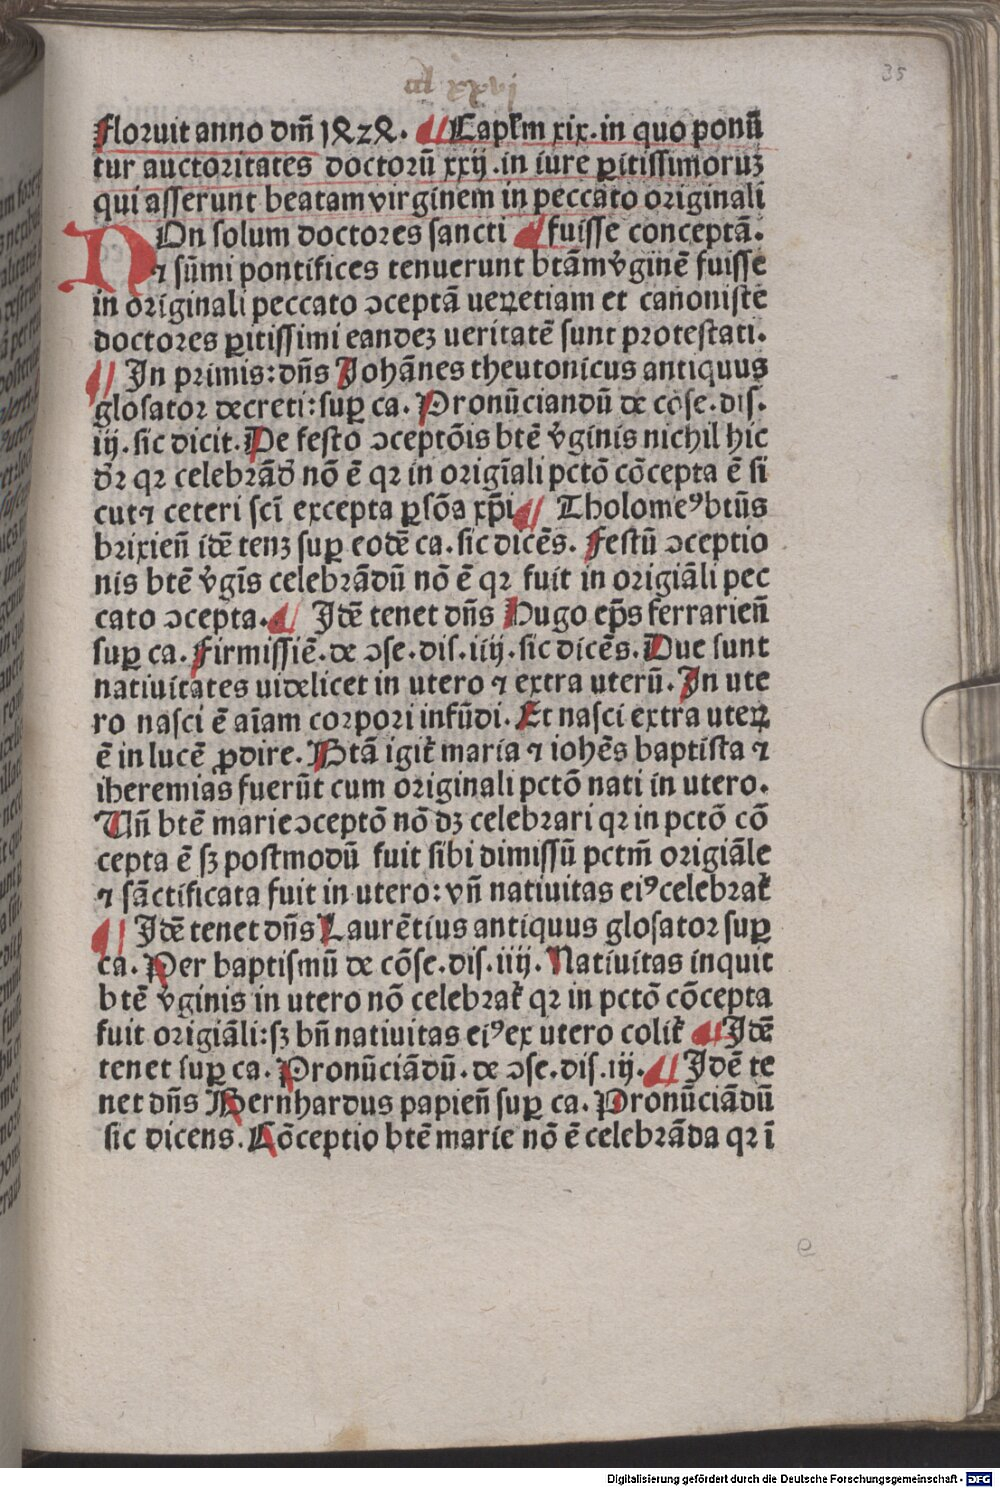 ccl xxvi
35
floruit anno dm̄ 1ꝝ2ꝝ. ¶ Capl̓m xix. in quo ponū
tur auctoritates doctorū xxij. in iure ꝑitissimoruꝫ
qui asserunt beatam virginem in peccato originali
NOn solum doctores sancti ¶ fuisse conceptā.
⁊ sūmi pontifices tenuerunt btām v̓ginē fuisse
in originali peccato ↄceptā ueꝝetiam et canoniste
doctores ꝑitissimi eandeꝫ ueritatē sunt protestati.
¶ In primis: dn̄s Johānes theutonicus antiquus
glosator decreti: suꝑ ca. Pronūciandū de cōse. dis.
iij. sic dicit. De festo ↄceptōis btē v̓ginis nichil hic
dr̄ qr celebrād̓ nō ē qr in origīali pctō cōcepta ē si
cut⁊ ceteri scī excepta ꝑsōa xp̄i ¶ Tholomeꝰbtūs
brixien̄ idē tenꝫ suꝑ eodē ca. sic dicēs. Festū ↄceptio
nis btē v̓gīs celebrādū nō ē qr fuit in origiāli pec
cato ↄcepta. ¶ Idē tenet dn̄s Hugo ep̄s ferrarien̄
suꝑ ca. Firmissiē. de ↄse. dis. iiij. sic dicēs. Due sunt
natiuitates uidelicet in utero ⁊ extra uterū. In ute
ro nasci ē aīam corpori infūdi. Et nasci extra uteꝝ
ē in lucē ꝓdire. Btā igit̓ maria ⁊ iohēs baptista ⁊
iheremias fuerūt cum originali pctō nati in utero.
Un̄ btē marie ↄceptō nō dꝫ celebrari qr in pctō cō
cepta ē sꝫ postmodū fuit sibi dimissū pctm̄ origiāle
⁊ sāctificata fuit in utero: vn̄ natiuitas eiꝰ celebrat̓
¶ Idē tenet dn̄s Laurētius antiquus glosator suꝑ
ca. Per baptismū de cōse. dis. iiij. Natiuitas inquit
btē v̓ginis in utero nō celebrat̓ qr in pctō cōcepta
fuit origiāli: sꝫ bn̄ natiuitas eiꝰ ex utero colit̓ ¶ Idē
tenet suꝑ ca. Pronūciādū. de ↄse. dis. iij. ¶ Idē te
net dn̄s Bernhardus papien̄ suꝑ ca. Pronūciādū
sic dicens. Cōceptio btē marie nō ē celebrāda qr ī
e
Digitalisierung gefördert durch die Deutsche Forschungsgemeinschaft - DFG